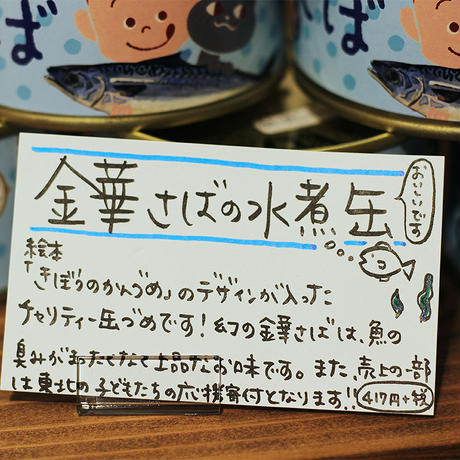 さば
ば
金華さばの水煮缶
おいしいです
絵本
「きぼうのかんづめ」のデザインが入った
チャリティー缶づめです！幻の金華さばは、魚の
臭みがまったくなく上品なお味です。また、売上の一部
は東北の子どもたちの応援寄付となります!!
417円+税